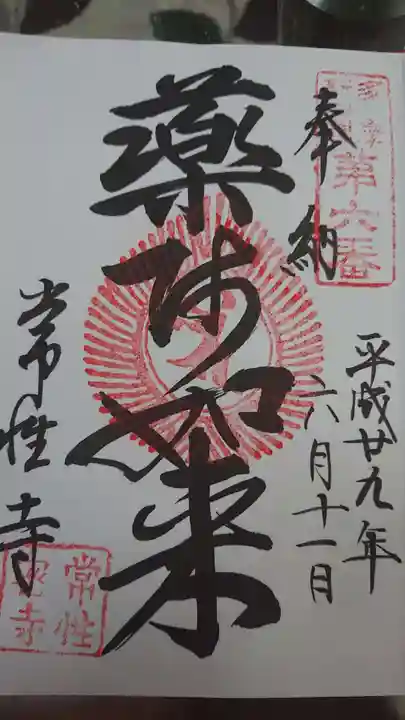 多摩
第六番
奉納
平成廿九年
六月十一日
薬師如来
常性寺
常性
寺